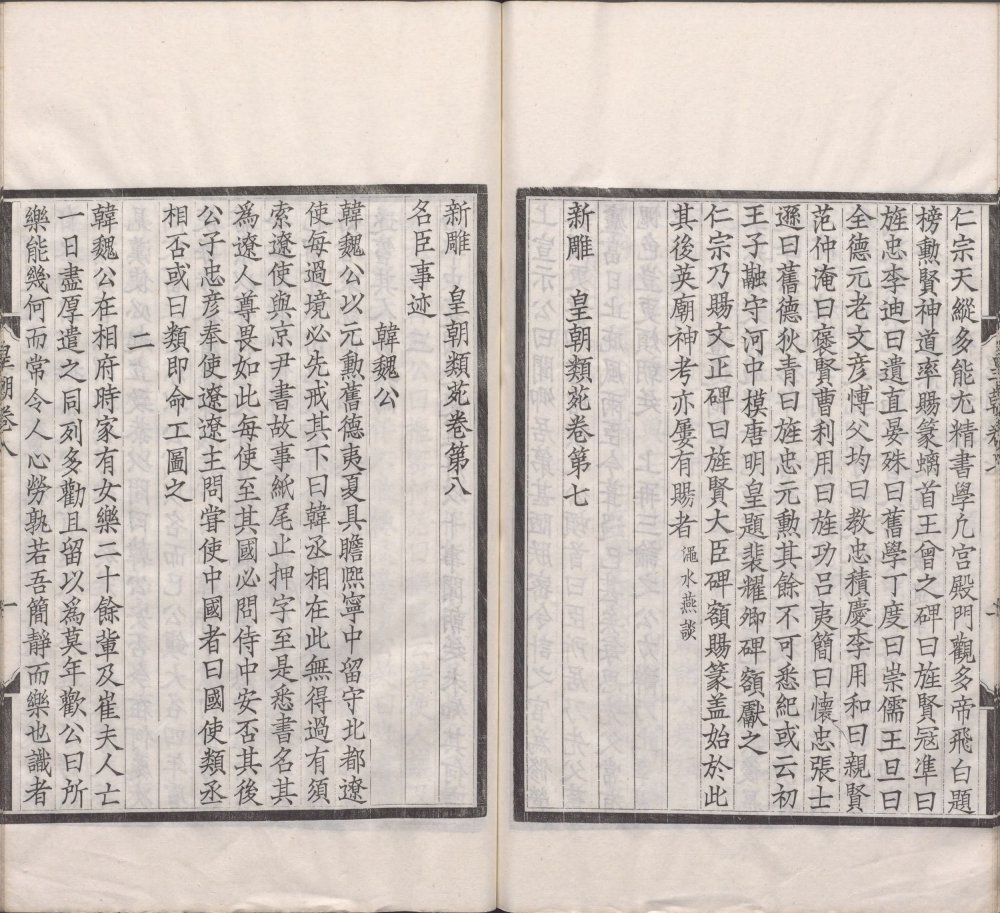 仁宗天縱多能尤精書學凡宫殿門觀多帝飛白題
榜勲賢神道率賜篆螭首王曾之碑曰旌賢冦準曰
旌忠李迪曰遺直晏殊曰舊學丁度曰崇儒王旦曰
全德元老文彦愽父均曰教忠積慶李用和曰親賢
范仲淹曰褒賢曹利用曰旌功吕夷簡曰懷忠張士
遜曰舊德狄青曰旌忠元勲其餘不可悉紀或云初
王子融守河中模唐明皇題裴耀卿碑額獻之
仁宗乃賜文正碑曰旌賢大臣碑額賜篆盖始於此
其後英廟神考亦屢有賜者 澠水燕談
新雕 皇朝類苑卷第七
新雕 皇朝類苑卷第八
名臣事迹
韓魏公
韓魏公以元勲舊德夷夏具瞻熈寧中留守北都遼
使每過境必先戒其下曰韓丞相在此無得過有須
索遼使與京尹書故事紙尾止押字至是悉書名其
為遼人尊畏如此每使至其國必問侍中安否其後
公子忠彦奉使遼遼主問嘗使中國者曰國使類丞
相否或曰類即命工圖之
二
韓魏公在相府時家有女樂二十餘軰及崔夫人亡
一日盡厚遣之同列多勸且留以爲莫年歡公曰所
樂能幾何而常令人心勞孰若吾簡静而樂也識者
皇朝卷八
一